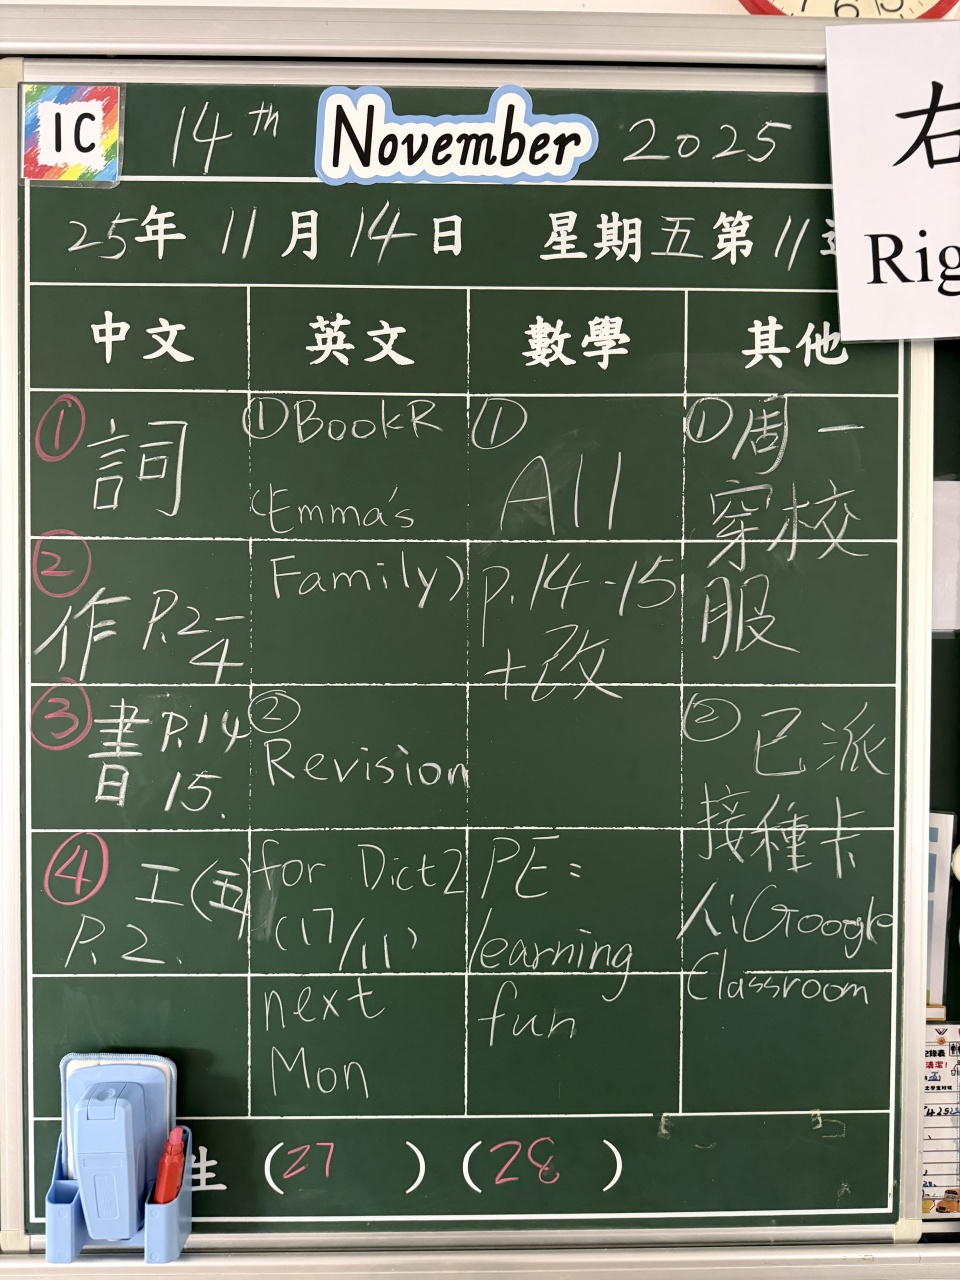 1C
14th November 2025
25年 11月 14日 星期五第 11
右
Rig
中文 英文 數學 其他
① 詞
② 作 P.2-4
③ 書 P.14
日 15.
④ 工(五)
P.2.
① BookR
(Emma's
Family)
②
Revision
for Dict2
(17/11)
next
Mon
①
All
p.14-15
+改
PE:
learning
fun
① 周一
穿校
服
② 已派
接種卡
Google
Classroom
生 (27) (28)